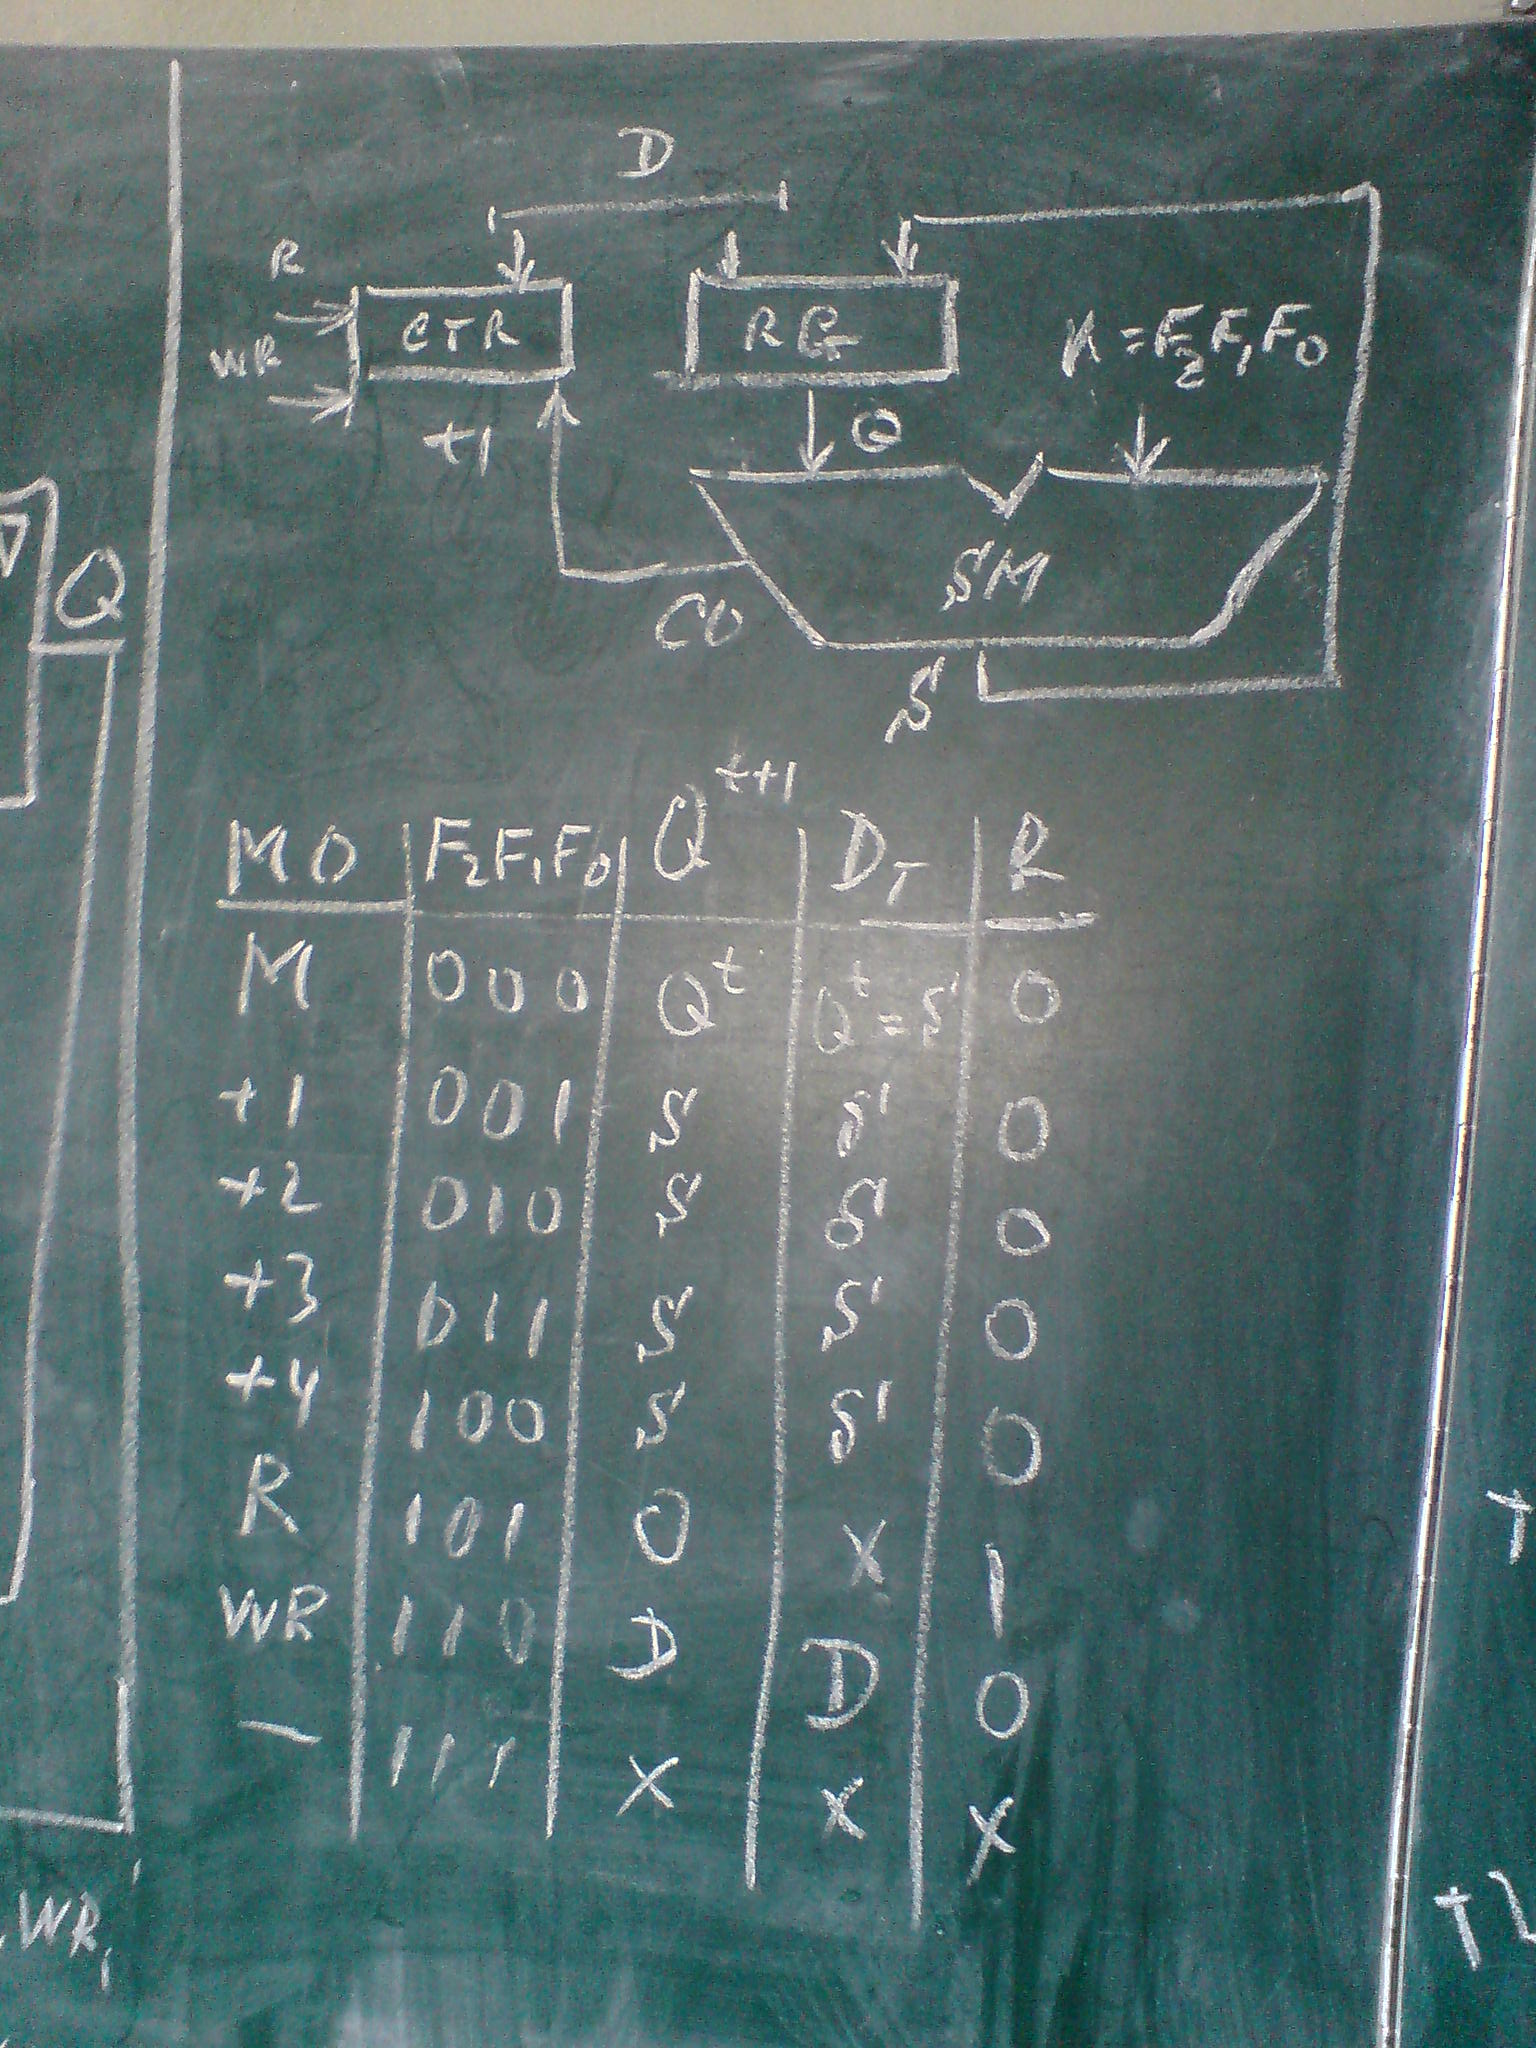 D
R
CTR
RG
K=F₂F₁F₀
WR
+1
Q
Q
SM
CO
S
MO F₂F₁F₀ Qᵗ⁺¹ D_T R
M 000 Qᵗ Qᵗ=S 0
+1 001 S S 0
+2 010 S S 0
+3 011 S S 0
+4 100 S S 0
R 101 0 X 1
WR 110 D D 0
— 111 X X X
WR,